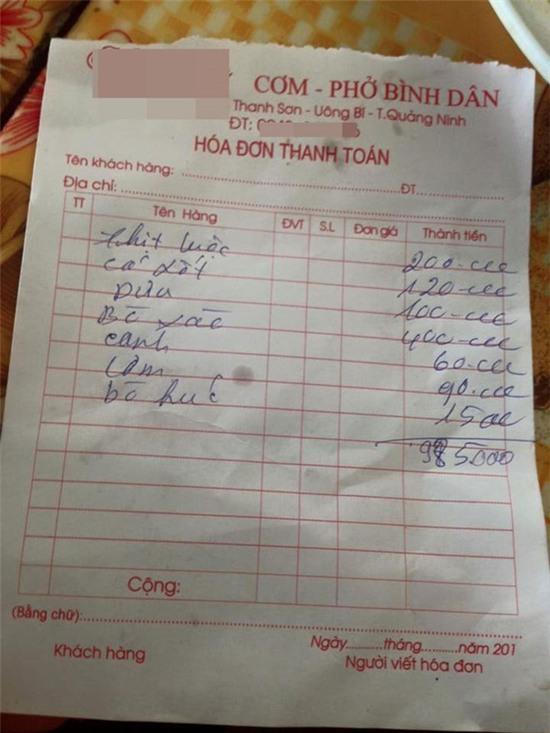 CƠM - PHỞ BÌNH DÂN
Thanh Sơn - Uông Bí - T.Quảng Ninh
ĐT:
HÓA ĐƠN THANH TOÁN
Tên khách hàng: ĐT
Địa chỉ:
TT Tên Hàng ĐVT S.L Đơn giá Thành tiền
thịt luộc 200.000
cá 120.000
Dứa 100.000
Bò xào 400.000
canh 60.000
cơm 90.000
bò húc 15000
985.000
Cộng:
(Bằng chữ)
Ngày tháng năm 201
Khách hàng Người viết hóa đơn